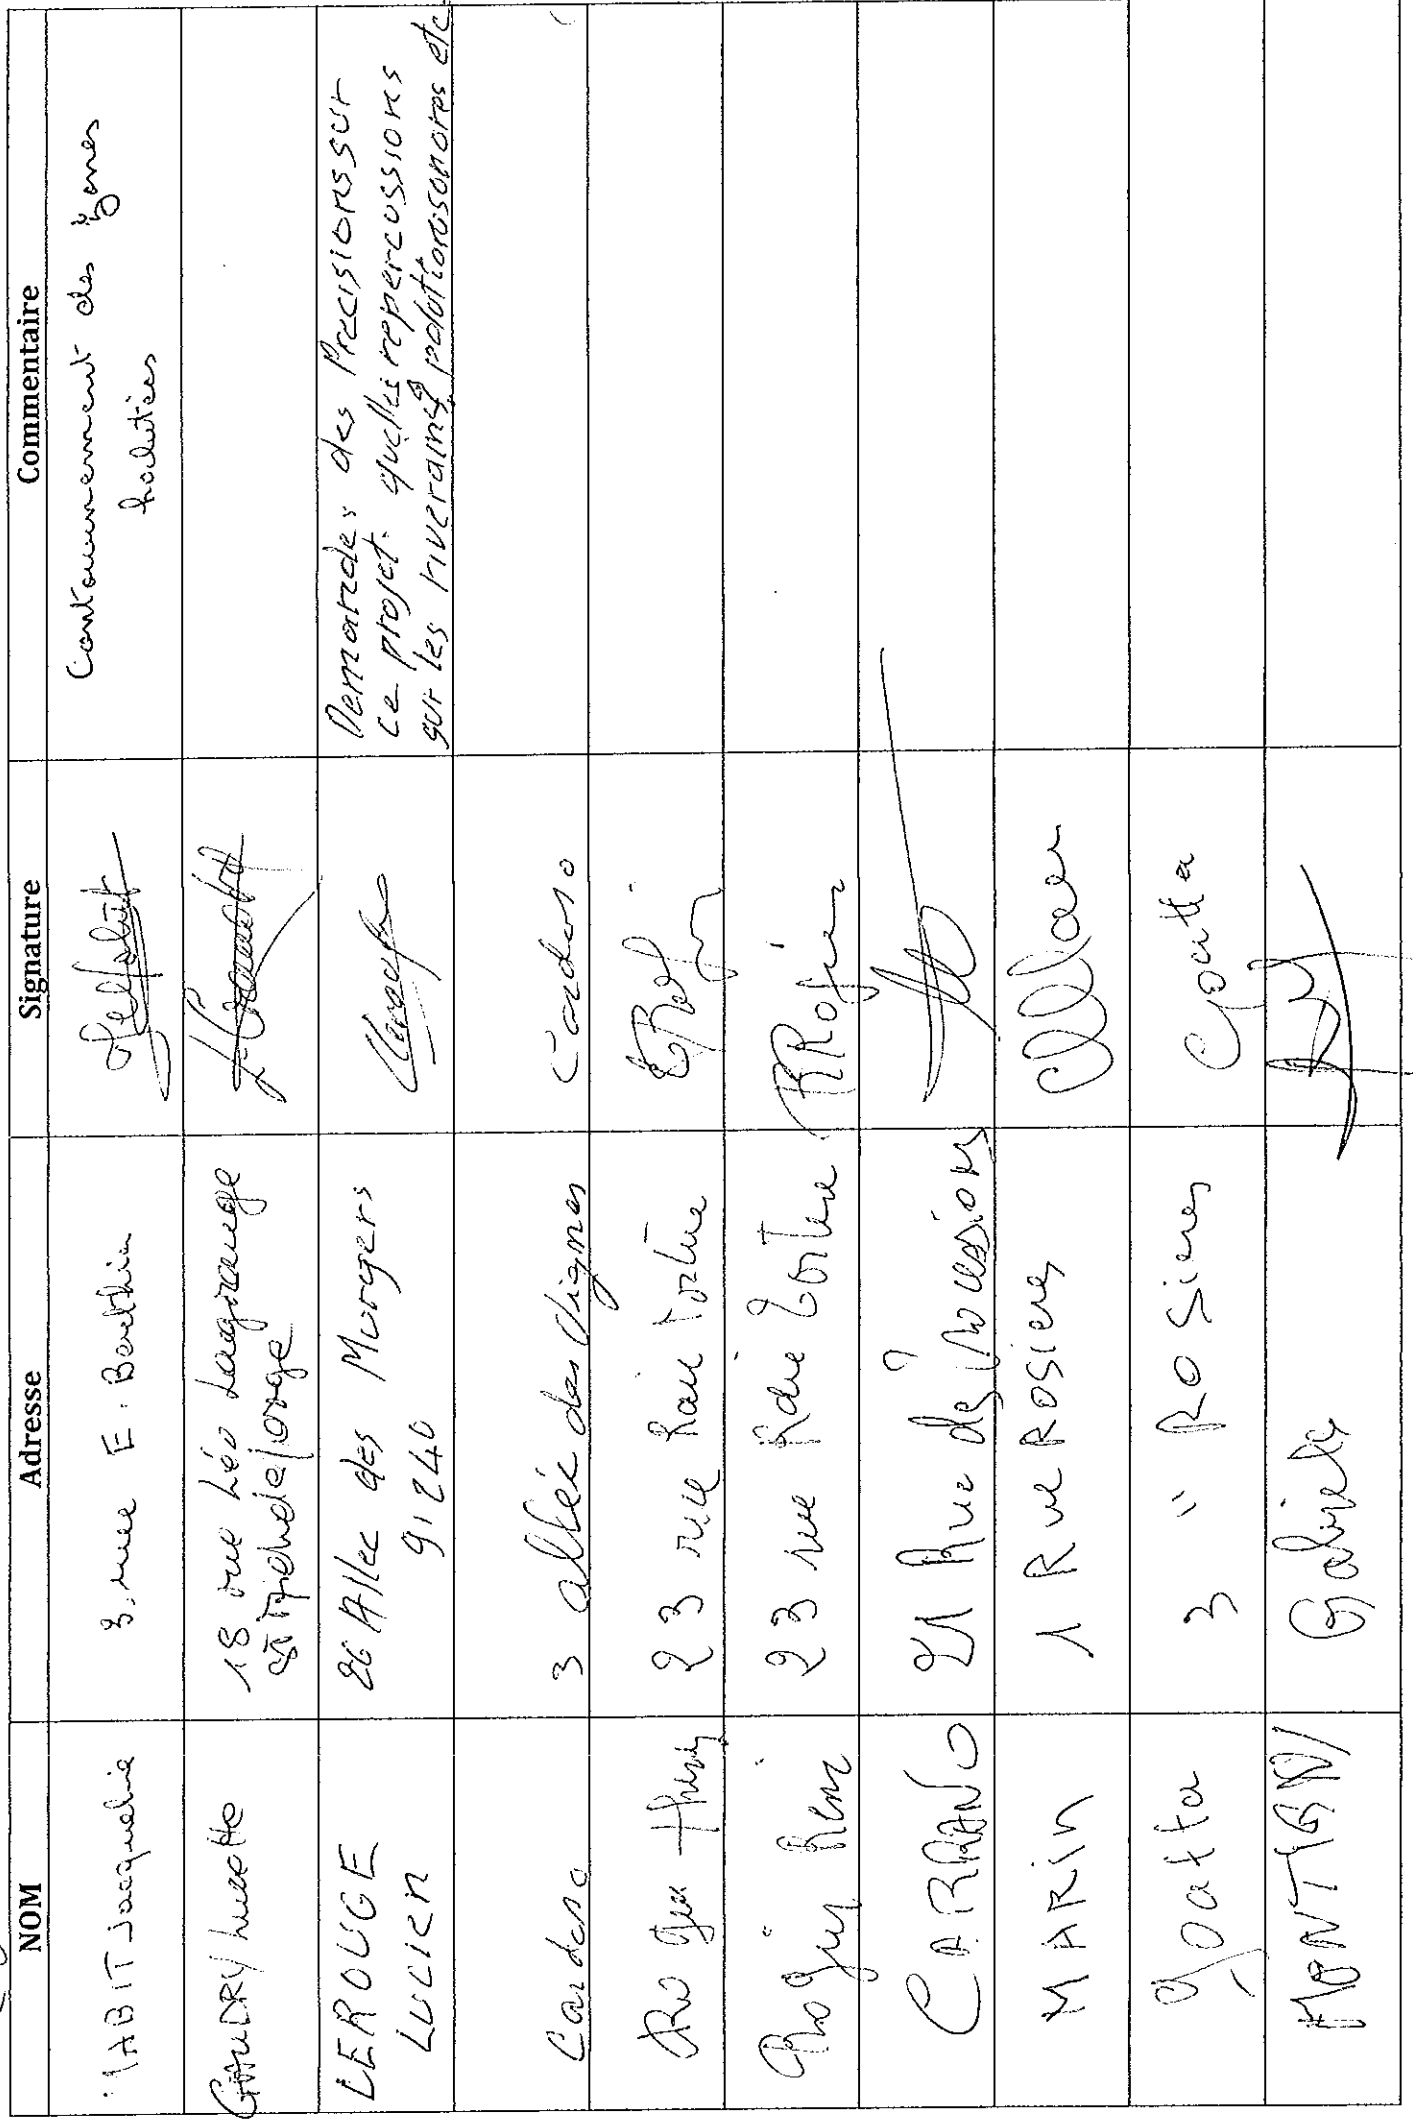 NOM Adresse Signature Commentaire
HABIT Jacqueline 3, rue E. Berthier Contournement des zones
habitées
GAUDRY Lucette 18 rue Léo Lagrange
St Michel s/orge
LEROUGE 26 Allee des Murgers Demandes des Precisions sur
LUCIEN 91240 ce projet. quelles repercussions
sur les riverains polutions sonores etc
Cardoso 3 allée des Vignes Cardoso
23 rue Haie Tortue
Rogier Remi 23 rue Haie Tortue RRogier
CARRANO 21 Rue des Processions
MARIN 1 Rue ROSIERES
goatta 3 " ROSieres Goatta